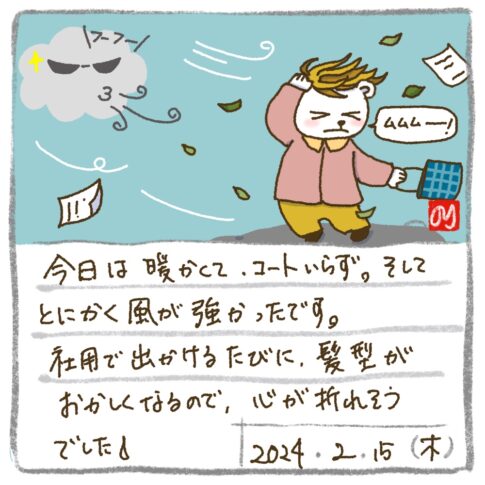 フーフー
ムムムー！
今日は暖かくて、コートいらず。そして
とにかく風が強かったです。
社用で出かけるたびに、髪型が
おかしくなるので、心が折れそう
でした
2024.2.15（木）